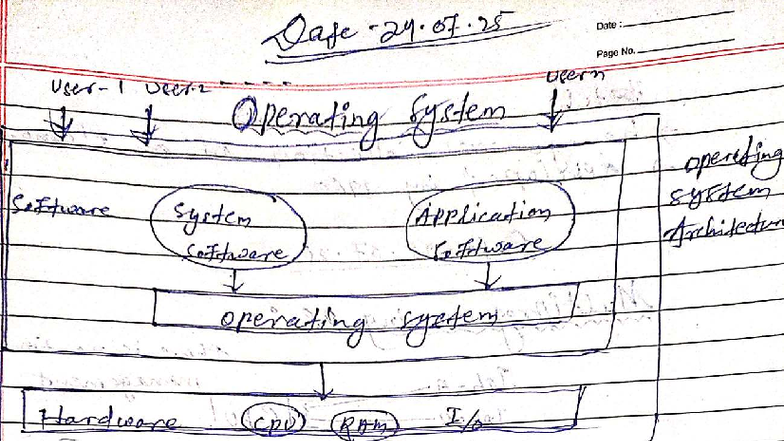 Date - 24.07.25
Date :
Page No.
User-1 User-2 - - - - User n
Operating System
Operating
System
Architecture
Software
System
Software
Application
Software
Operating System
Hardware CPU RAM I/O